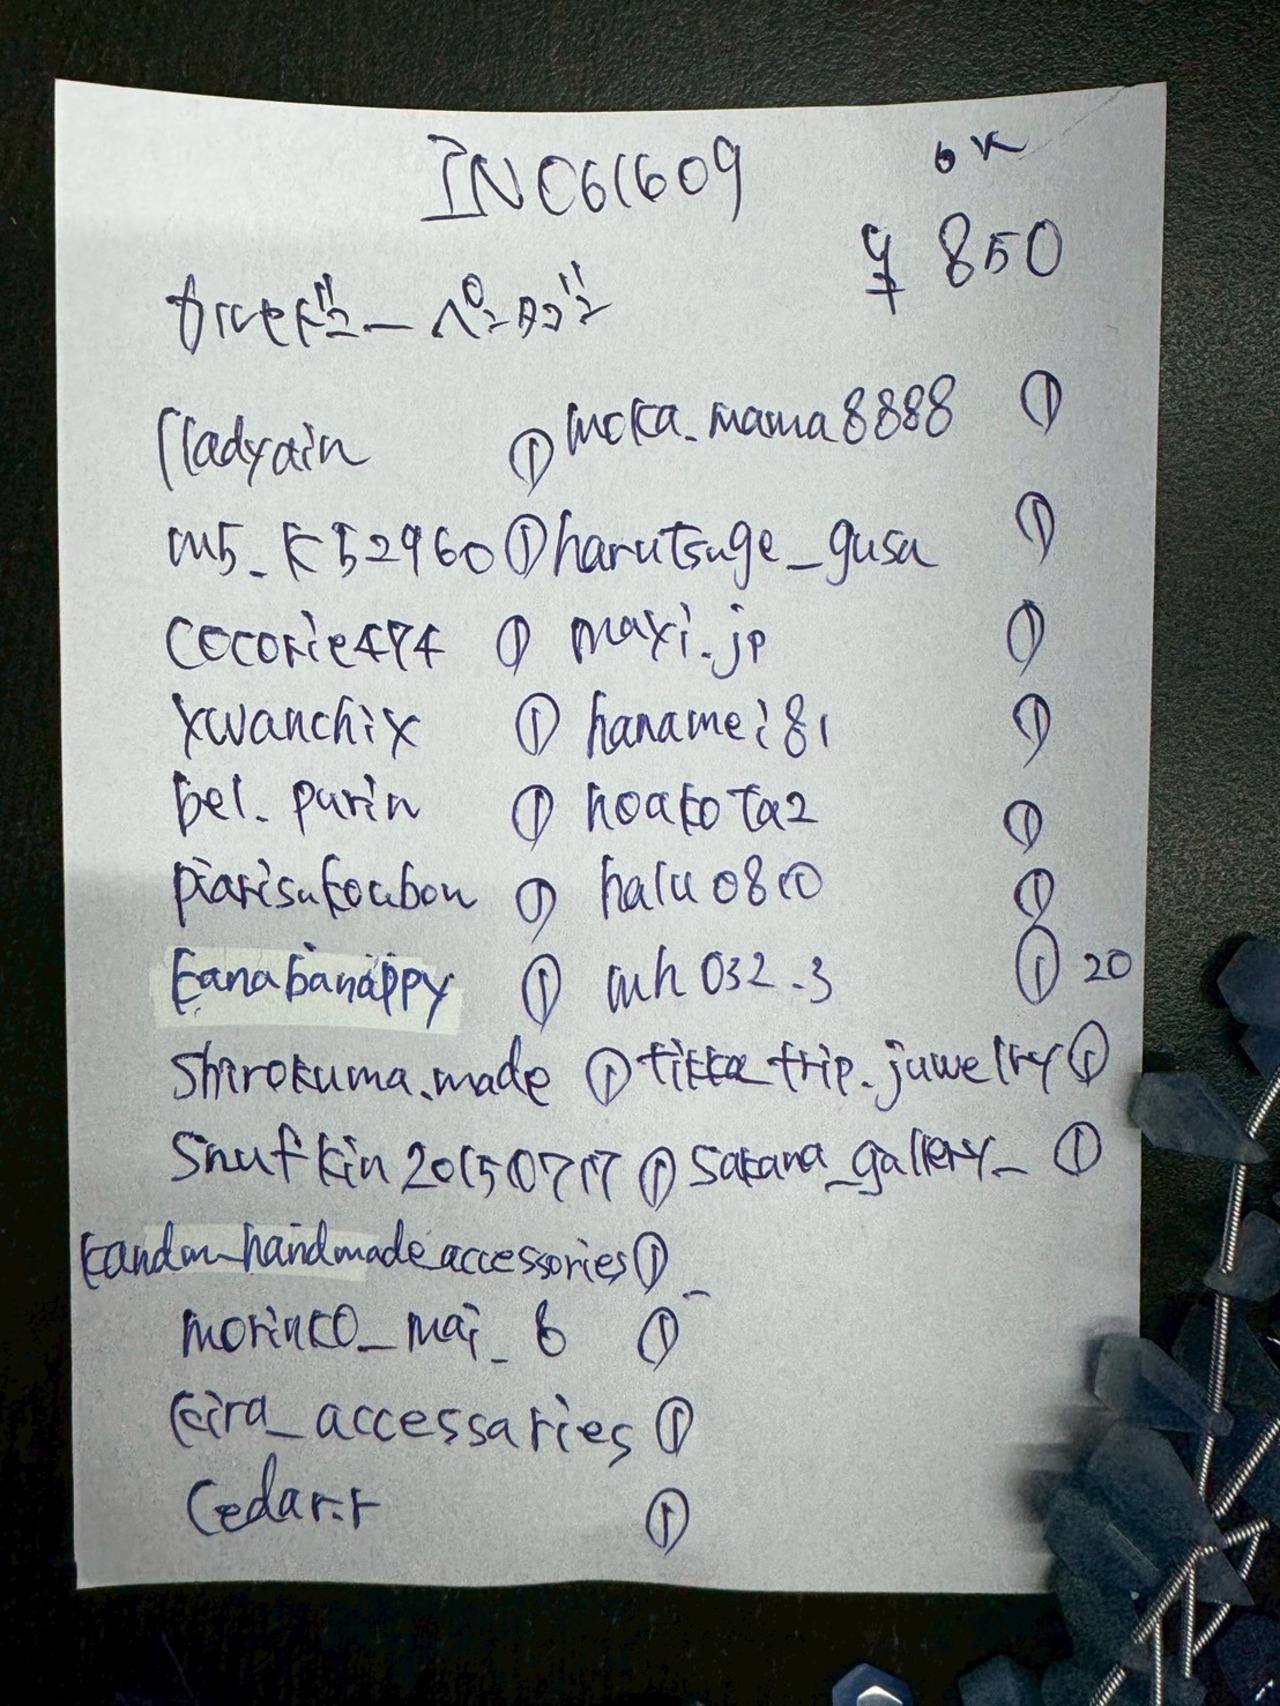 INC61609
ok
¥ 850
lladyain ① moka_mama8888 ①
m5_k52960 ① harutsuge_gusa ①
cocorie474 ① maxi.jp ①
xwanchix ① hanamei81 ①
bel._purin ① hoakota2 ①
piarisukoubou ① halu0810 ①
kanabanappy ① mh032.3 ① 20
shirokuma.made ① tikka_trip.juwelry ①
Snufkin20150717 ① sakana_gallery_ ①
kandm_handmadeaccessories ①
morinko_mai_6 ①
kira_accessaries ①
Cedar.r ①